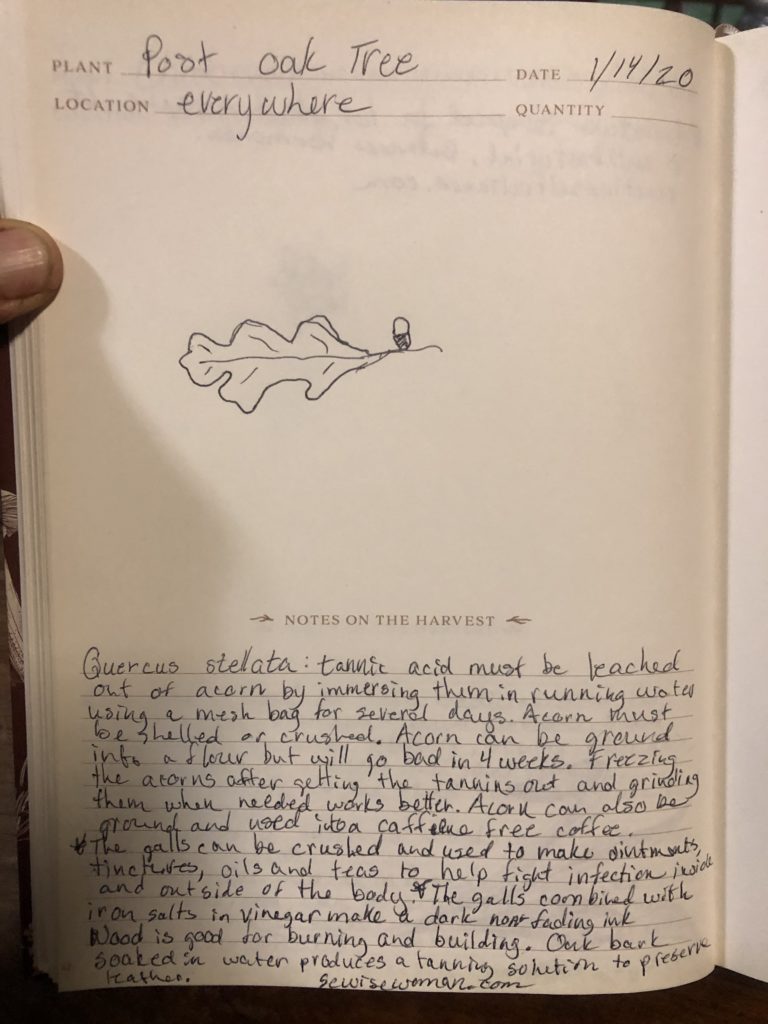 PLANT Post oak Tree DATE 1/14/20
LOCATION everywhere QUANTITY
NOTES ON THE HARVEST
Quercus stellata: tannic acid must be leached
out of acorn by immersing them in running water
using a mesh bag for several days. Acorn must
be shelled or crushed. Acorn can be ground
into a flour but will go bad in 4 weeks. Freezing
the acorns after getting the tannins out and grinding
them when needed works better. Acorn can also be
ground and used into a caffeine free coffee.
*The galls can be crushed and used to make ointments,
tinctures, oils and teas to help fight infection inside
and outside of the body.* The galls combined with
iron salts in vinegar make a dark non fading ink
Wood is good for burning and building. Oak bark
soaked in water produces a tanning solution to preserve
leather. sewisewoman.com